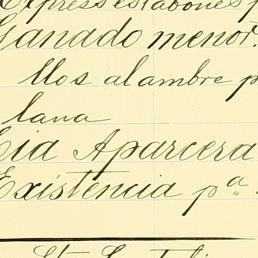 Express estabones p
Ganado menor.
llos alambre p
lana
Cia Aparcera
Existencia pª